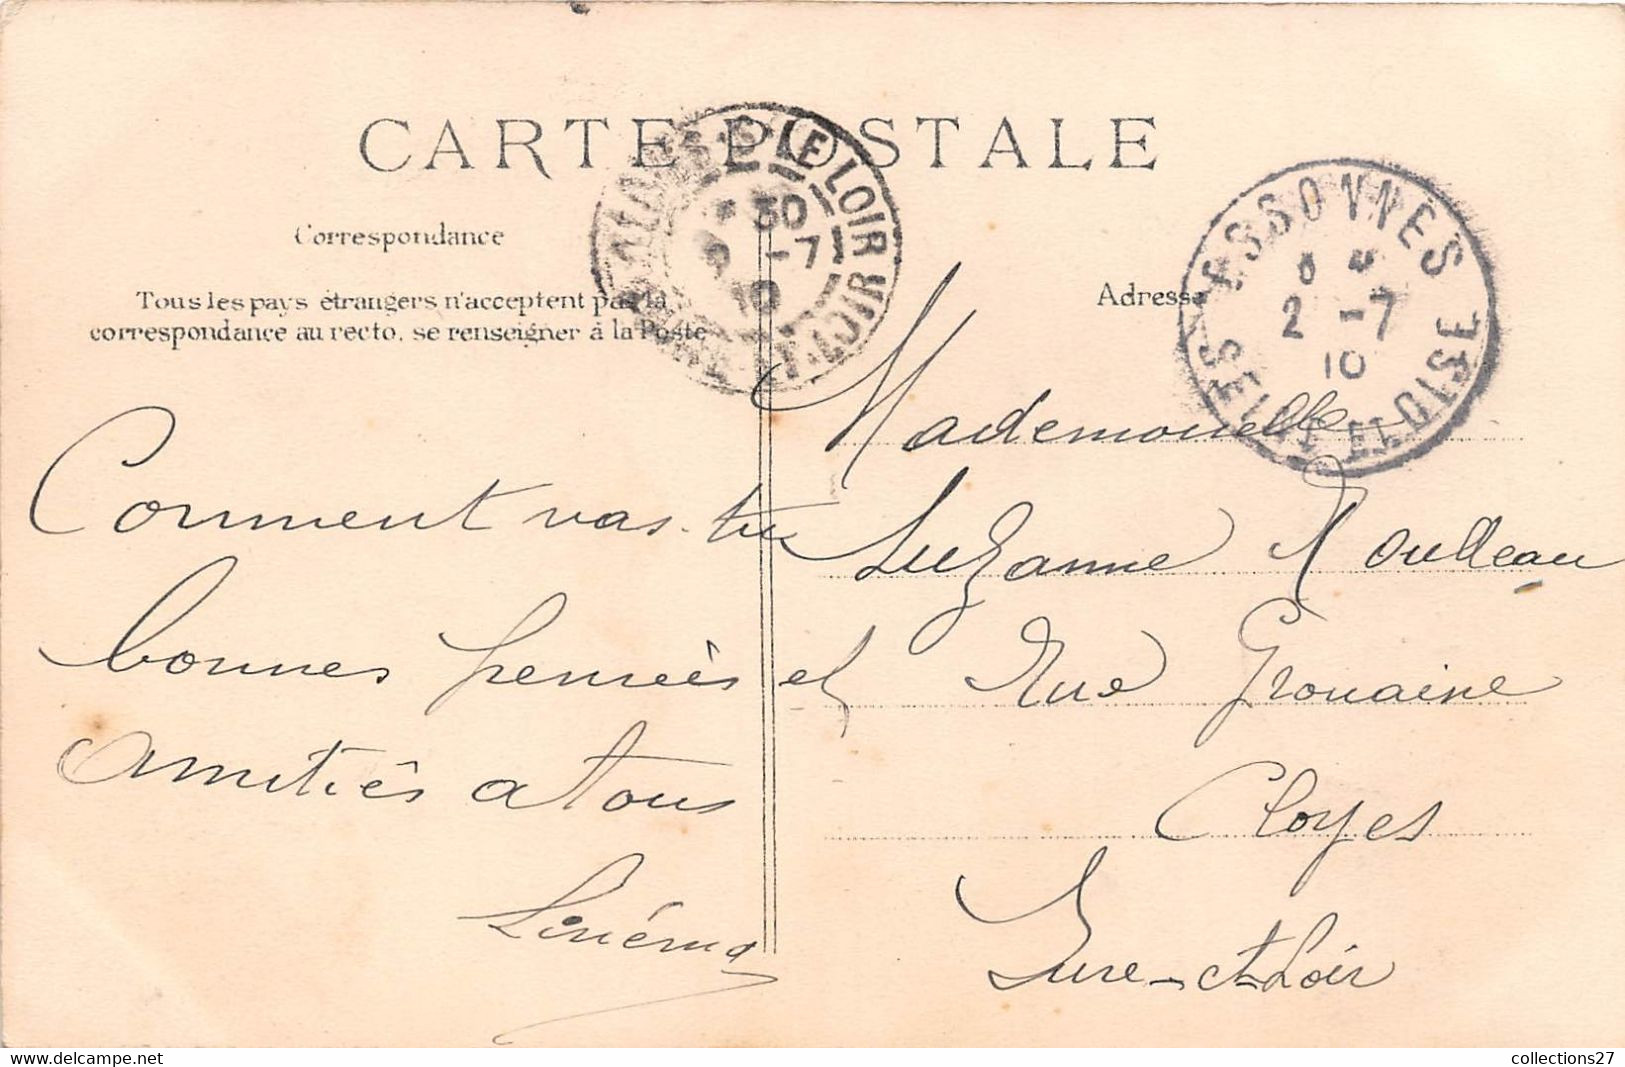 CARTE POSTALE
Correspondance
Tous les pays étrangers n'acceptent pas la
correspondance au recto, se renseigner à la Poste
Adresse
LE LOIR
30
-7
10
EURE-ET-LOIR
ESSONNES
2 -7
10
SEINE ET OISE
Comment vas-tu
bonnes pensées et
amitiés a tous
Mademoiselle
Suzanne
Rue Grouaine
Cloyes
Eure-et-Loir
collections27